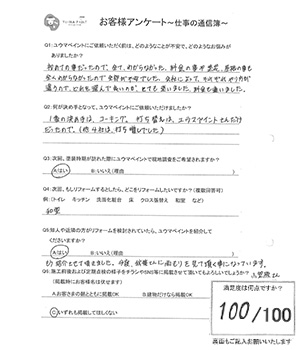 お客様アンケート～仕事の通信簿～
Q1:ユウマペイントにご依頼いただく前は、どのようなことが不安で、どのようなお悩みが
ありましたか?
初めての事だったので、全て、わからなかった。料金の事や業者、
全くわからなかったので全部が不安でした。会社によって、やり方が
違うので、どれを選んで良いのか、とても迷いました。料金も違いました。
Q2:何が決め手となって、ユウマペイントにご依頼いただけましたか?
1番の決め手は、コーキング、打ち替えは、ユウマペイントさんだけ
だったので、(他4社は、打ち増しでした)
Q3:次回、塗装時期が訪れた際にユウマペイントで現地調査をご希望されますか?
Aはい Bいいえ(理由 )
Q4:次回、もしリフォームするとしたら、どこをリフォームしたいですか?(複数回答可)
例:(トイレ キッチン 洗面化粧台 床 クロス張替え 和室 など)
和室
Q5:知人や近隣の方がリフォームを検討されていたら、ユウマペイントを紹介して
くださいますか?
Aはい Bいいえ(理由 )
もう紹介させて頂きました。今度、
Q6:施工前後および定期点検の様子をチラシやSNS等に掲載させて頂いてもよろしいでしょうか?
(掲載時にお客様名は伏せます)
Aお客さまの顔とともに掲載OK B建物だけなら掲載OK
Cいずれも掲載してほしくない
満足度は何点ですか?
100/100
裏面もご記入お願いいたします